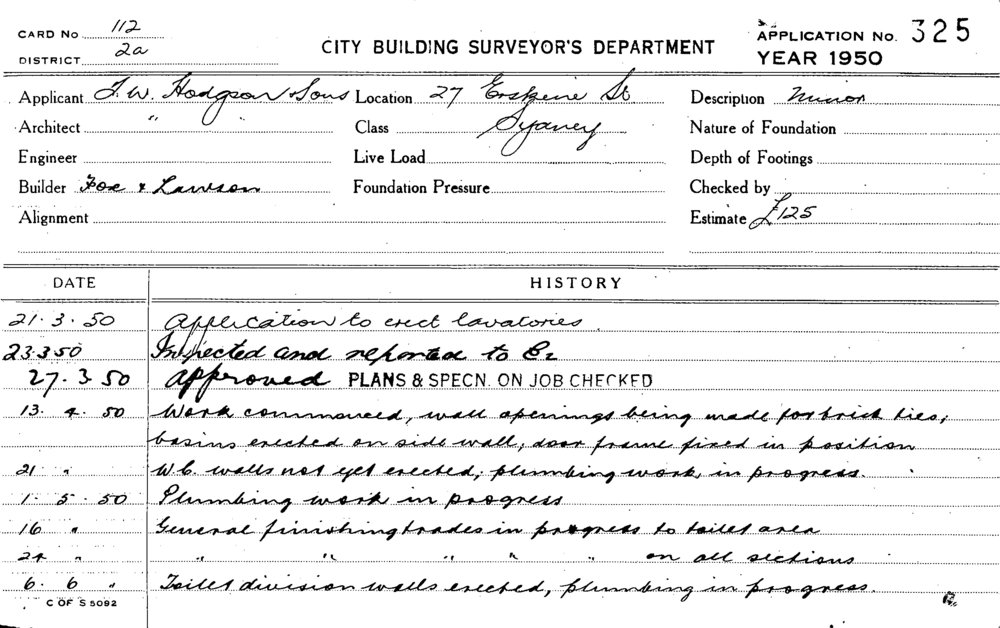 CARD No 112
DISTRICT 2a
CITY BUILDING SURVEYOR'S DEPARTMENT
APPLICATION No. 325
YEAR 1950
Applicant J. W. Hodgson & Sons Location 27 Erskine St Description Minor
Architect " " Class Sydney Nature of Foundation
Engineer Live Load Depth of Footings
Builder Fox & Lawson Foundation Pressure Checked by
Alignment Estimate £125
DATE HISTORY
21.3.50 Application to erect lavatories.
23.3.50 Inspected and reported to
27.3.50 Approved PLANS & SPECN. ON JOB CHECKED
13.4.50 Work commenced, wall openings being made for brick ties;
basins erected on side wall; door frame fixed in position
21 " W.C. walls not yet erected; plumbing work in progress.
1.5.50 Plumbing work in progress
16 " General finishing trades in progress to toilet area
24 " " " " " " on all sections
6.6 " Toilet division walls erected, plumbing in progress.
C OF S 5092